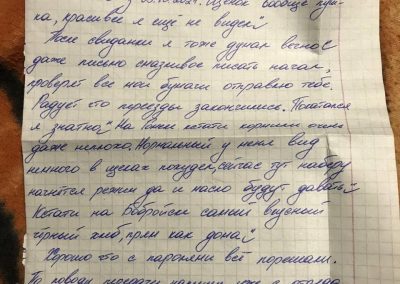 03.10.2024. Щенок вообще пуш-
ка, красивее я ещё не видел
После свидания я тоже думал весной
даже письмо слезливое писать начал,
проверят все мои бумаги отправлю тебе.
Радует что переезды закончились. Покатался
я знатно На Гонки кстати кормили очень
даже неплохо. Нормальный у меня вид
немного в щеках похудел, сейчас тут наберу
начнётся режим да и масло будут давать
Кстати на Бобруйске самый вкусный
чёрный хлеб, прям как дома
Хорошо что с паролями всё порешали.
По поводу передачи напишу